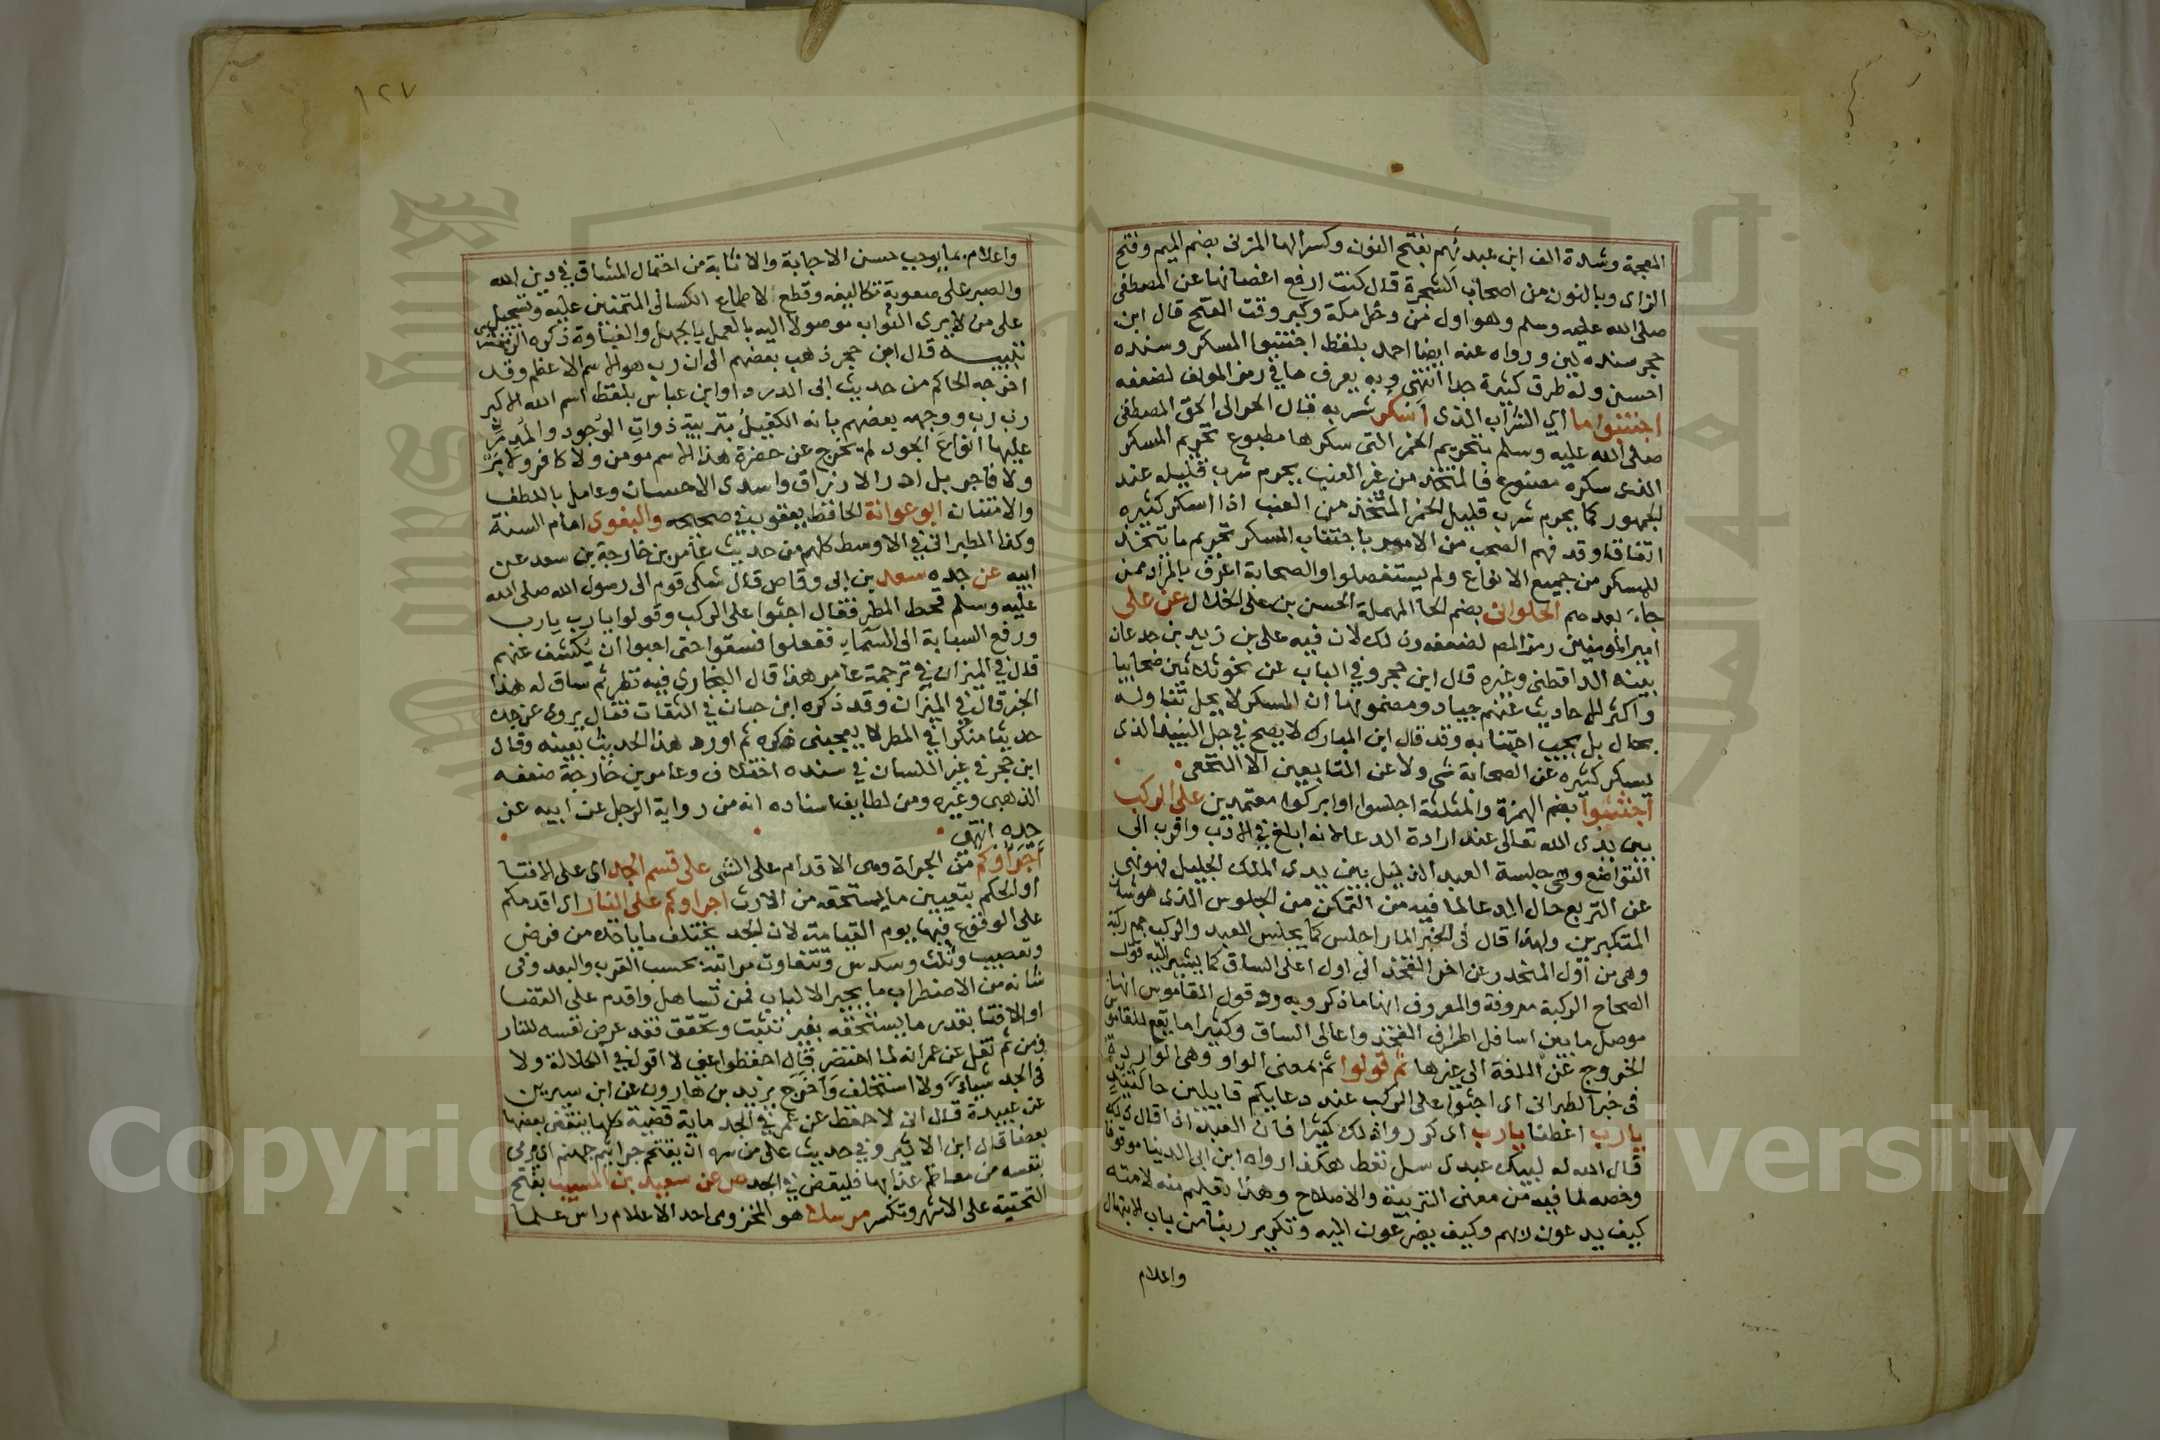 المعجمة وشدة الف ابن عبد نهم بفتح النون وكسر الها المزنى بضم الميم وفتح
الزاى وبالنون من اصحاب الشجرة قال كنت ارفع اغصانها عن المصطفى
صلى الله عليه وسلم وهو اول من دخل مكة وكبر وقت الفتح قال ابن
حجر سنده لين ورواه عنه ايضا احمد بلفظ اجتنبوا المسكر وسنده
احسن وله طرق كثيرة جدا انتهى وبه يعرف ما في رمز المولف لضعفه
اجتنبوا ما اى الشراب الذى اسكر شربه قال الحرالى الحق المصطفى
صلى الله عليه وسلم بتحريم الخمر التى سكرها مطبوع تحريم المسكر
الذى سكره مصنوع فالمتخذ من غير العنب يحرم شرب قليله عند
الجمهور كما يحرم شرب قليل الخمر المتخذ من العنب اذا اسكر كثيره
اتفاقا وقد فهم الصحب من الامر باجتناب المسكر تحريم ما يتخذ
للمسكر من جميع الانواع ولم يستفصلوا والصحابة اعرف بالمراد ممن
جاء بعدهم الحلوانى بضم الحا المهملة الحسن بن على الخلال عن على
امير المومنين رمز المص لضعفه وذلك لان فيه على بن زيد بن جدعان
بينه الداقطنى وغيره قال ابن حجر وفي الباب عن نحو ثلاثين صحابيا
واكثر الاحاديث عنهم جياد ومضمونها ان المسكر لا يحل تناوله
بحال بل يجب اجتنابه وقد قال ابن المبارك لا يصح في حل النبيذ الذى
يسكر كثيره عن الصحابة شى ولا عن التابعين الا النخعى
اجثوا بضم الهمزة والمثلثة اجلسوا او ابركوا معتمدين على الركب
بين يدى الله تعالى عند ارادة الدعا لانه ابلغ في الادب واقرب الى
التواضع وهى جلسة العبد الذليل بين يدى الملك الجليل فهو نهى
عن التربع حال الدعا لما فيه من التمكن من الجلوس الذى هو شان
المتكبرين ولهذا قال في الخبر المار اجلس كما يجلس العبد والركب جمع ركبة
وهى من اول المنحدر عن اخر الفخذ الى اول اعلى الساق كما يشير اليه قول
الصحاح الركبة معروفة والمعروف انها ما ذكر وبه رد قول القاموس انها
موصل ما بين اسافل اطراف الفخذ واعالى الساق وكثيرا ما يقع للقاموس
الخروج عن اللغة الى غيرها ثم قولوا ثم بمعنى الواو وهى الواردة
في خبر الطبرانى اى اجثوا على الركب عند دعايكم قايلين حالتئذ
يا رب اعطنا يا رب اى كرروا ذلك كثيرا فان العبد اذا قال ذلك
قال الله له لبيك عبدى سل تعط هكذا رواه ابن ابى الدنيا موقوفا
وخصه لما فيه من معنى التربية والاصلاح وهذا تعليم منه لامته
كيف يدعون ربهم وكيف يضرعون اليه وتكرير ربنا من باب الابتهال
واعلام
١٢٧
واعلام بما يوجب حسن الاجابة والاثابة من احتمال المشاق في دين الله
والصبر على صعوبة تكاليفه وقطع لاطماع الكسالى المتمنين عليه وتسجيل
على من لا يرى الثواب موصولا اليه بالعمل بالجهل والغباوة ذكره الزمخشرى
تنبيه قال ابن حجر ذهب بعضهم الى ان رب هو الاسم الاعظم وقد
اخرجه الحاكم من حديث ابى الدرداء وابن عباس بلفظ اسم الله الاكبر
رب رب ووجهه بعضهم بانه الكفيل بتربية ذوات الوجود والمدر
عليها انواع الجود لم يخرج عن حضرة هذا الاسم مومن ولا كافر ولا بر
ولا فاجر بل ادر الارزاق واسدى الاحسان وعامل باللطف
والامتنان ابو عوانة الحافظ يعقوب في صحيحه والبغوى امام السنة
وكذا الطبرانى في الاوسط كلهم من حديث عامر بن خارجة بن سعد عن
ابيه عن جده سعد بن ابى وقاص قال شكى قوم الى رسول الله صلى الله
عليه وسلم قحط المطر فقال اجثوا على الركب وقولوا يا رب يا رب
ورفع السبابة الى السماء ففعلوا فسقوا حتى احبوا ان يكشف عنهم
قال في الميزان في ترجمة عامر هذا قال البخارى فيه نظر ثم ساق له هذا
الخبر قال في الميزان وقد ذكره ابن حبان في الثقات فقال يروى عن جده
حديثا منكرا في المطر لا يعجبنى ذكره ثم اورد هذا الحديث بعينه وقال
ابن حجر في غير اللسان في سنده اختلاف وعامر بن خارجة ضعفه
الذهبى وغيره ومن لطايف اسناده انه من رواية الرجل عن ابيه عن
جده انتهى
اجراوكم من الجراة وهى الاقدام على الشى على قسم الجد اى على الافتا
او الحكم بتعيين ما يستحقه من الارث اجراوكم على النار اى اقدمكم
على الوقوع فيها يوم القيامة لان الجد يختلف ما ياخذه من فرض
وتعصيب وثلث وسدس وتتفاوت مراتبه بحسب القرب والبعد وفى
شانه من الاضطراب ما يحير الالباب فمن تساهل واقدم على القضا
او الافتا بقدر ما يستحقه بغير تثبت وتحقق فقد عرض نفسه للنار
ومن ثم نقل عن عمر انه لما احتضر قال احفظوا عنى لا اقول في الكلالة ولا
في الجد شياء ولا استخلف واخرج يزيد بن هارون عن ابن سيرين
عن عبيدة قال انى لاحفظ عن عمر في الجد ماية قضية كلها ينقض بعضها
بعضا قال ابن الاثير وفي حديث على من سره ان يقتحم جراثيم جهنم اى يرمى
بنفسه من معاظم عذابها فليقض في الجد ص عن سعيد بن المسيب بفتح
التحتية على الاشهر وتكسر مرسلا هو المخزومى احد الاعلام راس علما